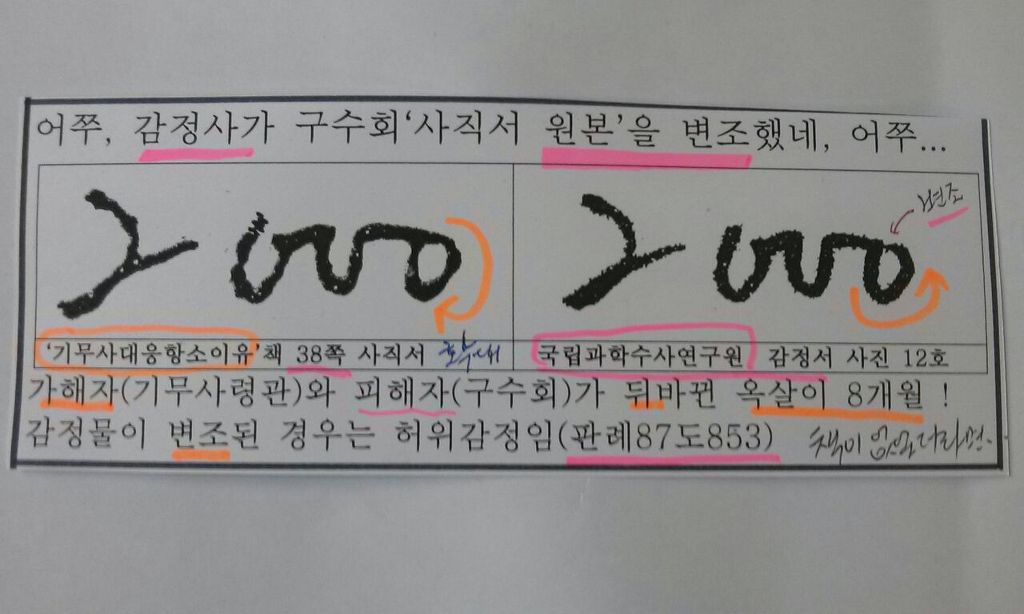 어쭈, 감정사가 구수회'사직서 원본'을 변조했네, 어쭈...
변조
2000 2000
'기무사대응항소이유'책 38쪽 사직서 국립과학수사연구원 감정서 사진 12호
가해자(기무사령관)와 피해자(구수회)가 뒤바뀐 옥살이 8개월 !
감정물이 변조된 경우는 허위감정임(판례87도853) 책이 없었다라면.